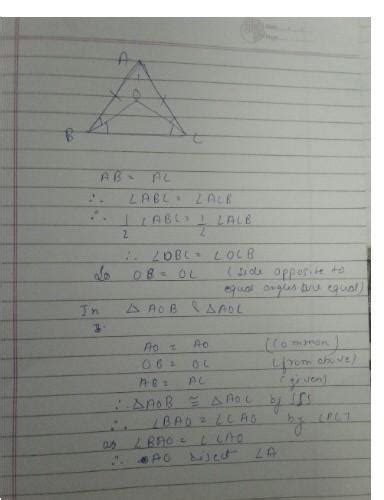 A
O
B
C
AB = AC
∴ ∠ABC = ∠ACB
∴ 1/2 ∠ABC = 1/2 ∠ACB
∴ ∠OBC = ∠OCB
So OB = OC (side opposite to
equal angles are equal)
In △AOB & △AOC
AO = AO (Common)
OB = OC (from above)
AB = AC (given)
∴ △AOB ≅ △AOC by SSS
∴ ∠BAO = ∠CAO by CPCT
as ∠BAO = ∠CAO
∴ AO bisect ∠A